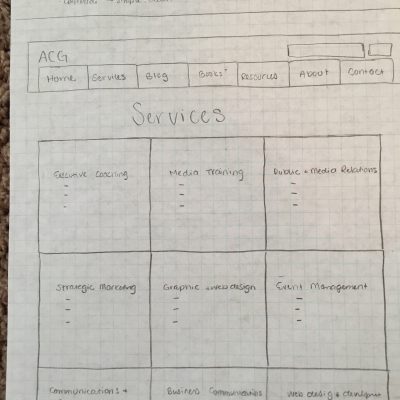 → simple
ACG
Home Services Blog Books Resources About Contact
Services
Executive Coaching Media Training Public + Media Relations
- - -
- - -
- - -
Strategic Marketing Graphic + web design Event Management
- - -
- - -
- - -
Communications + Business Communications web design +